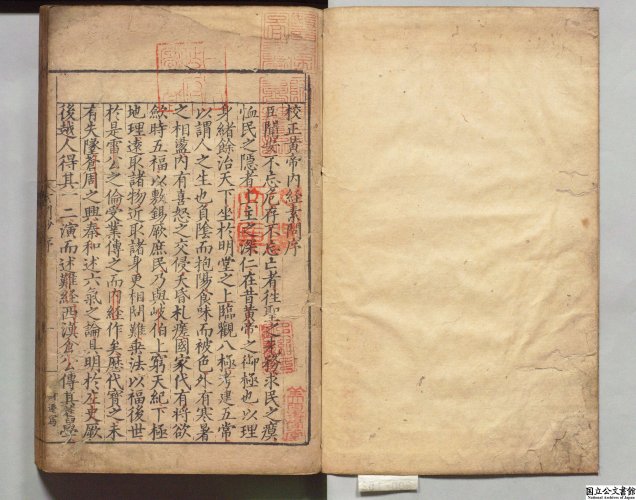 校正黃帝內經素問序
臣聞安不忘危存不忘亡者往聖之先務求民之瘼
恤民之隱者上主之深仁在昔黃帝之御極也以理
身緒餘治天下坐於明堂之上臨觀八極考建五常
以謂人之生也負陰而抱陽食味而被色外有寒暑
之相盪內有喜怒之交侵夭昏札瘥國家代有將欲
歛時五福以敷錫厥庶民乃與岐伯上窮天紀下極
地理遠取諸物近取諸身更相問難垂法以福後世
於是雷公之倫受業傳之而內經作矣歷代寶之未
有失墜蒼周之興秦和述六氣之論具明於左史厥
後越人得其一二演而述難經西漢倉公傳其舊學
国立公文書館
National Archives of Japan